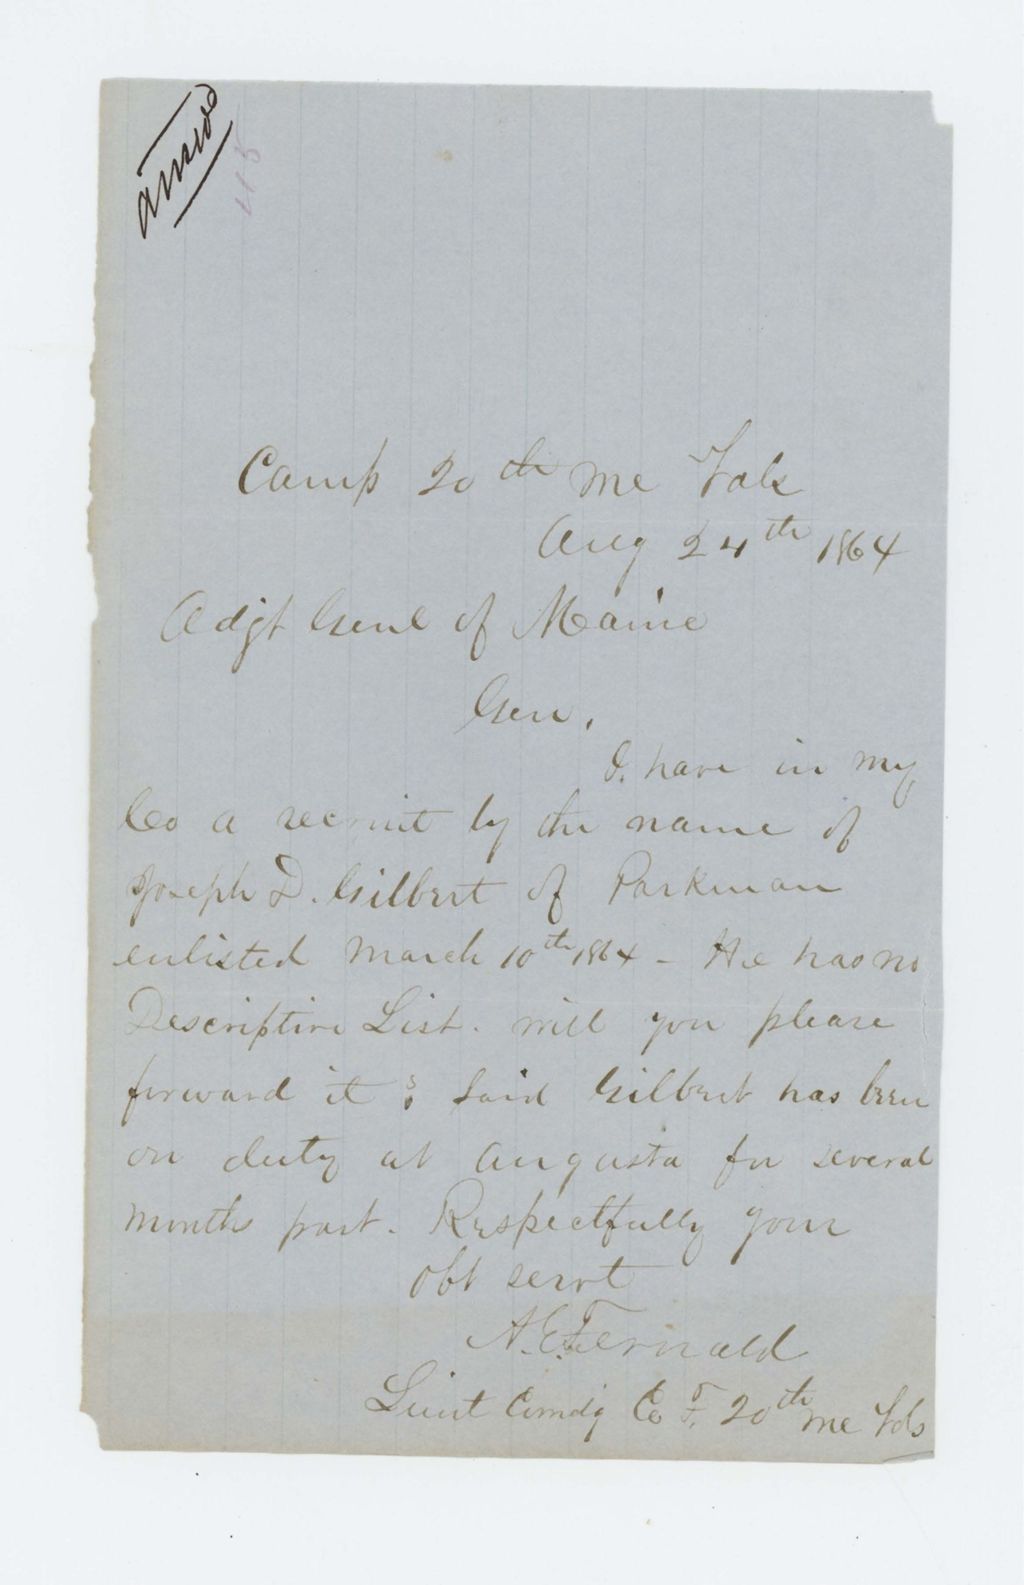 answd
115
Camp 20th Me Vols
Aug 24th 1864
Adjt Genl of Maine
Gen.
I. have in my
Co a recruit by the name of
Joseph D. Gilbert of Parkman
enlisted March 10th 1864 - He has no
Descriptive List. will you please
forward it? Said Gilbert has been
on duty at Augusta for several
months past. Respectfully your
obt servt
A.E. Fernald
Lieut Comdg Co F. 20th Me Vols